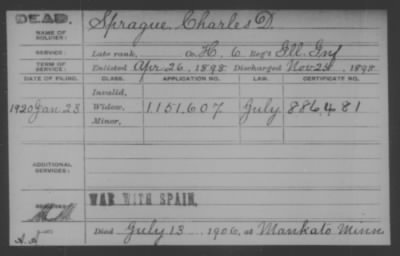 DEAD.
NAME OF SOLDIER: Sprague, Charles D.
SERVICE: Late rank, Co. H. 6 Reg't Ill. Inf
TERM OF SERVICE: Enlisted Apr. 26, 1898 Discharged Nov 25, 1898
DATE OF FILING. CLASS. APPLICATION NO. LAW. CERTIFICATE NO.
Invalid,
1920 Jan 23 Widow, 1.151.607 July 886.481
Minor,
ADDITIONAL SERVICES:
WAR WITH SPAIN.
Died July 13 1906, at Mankato Minn